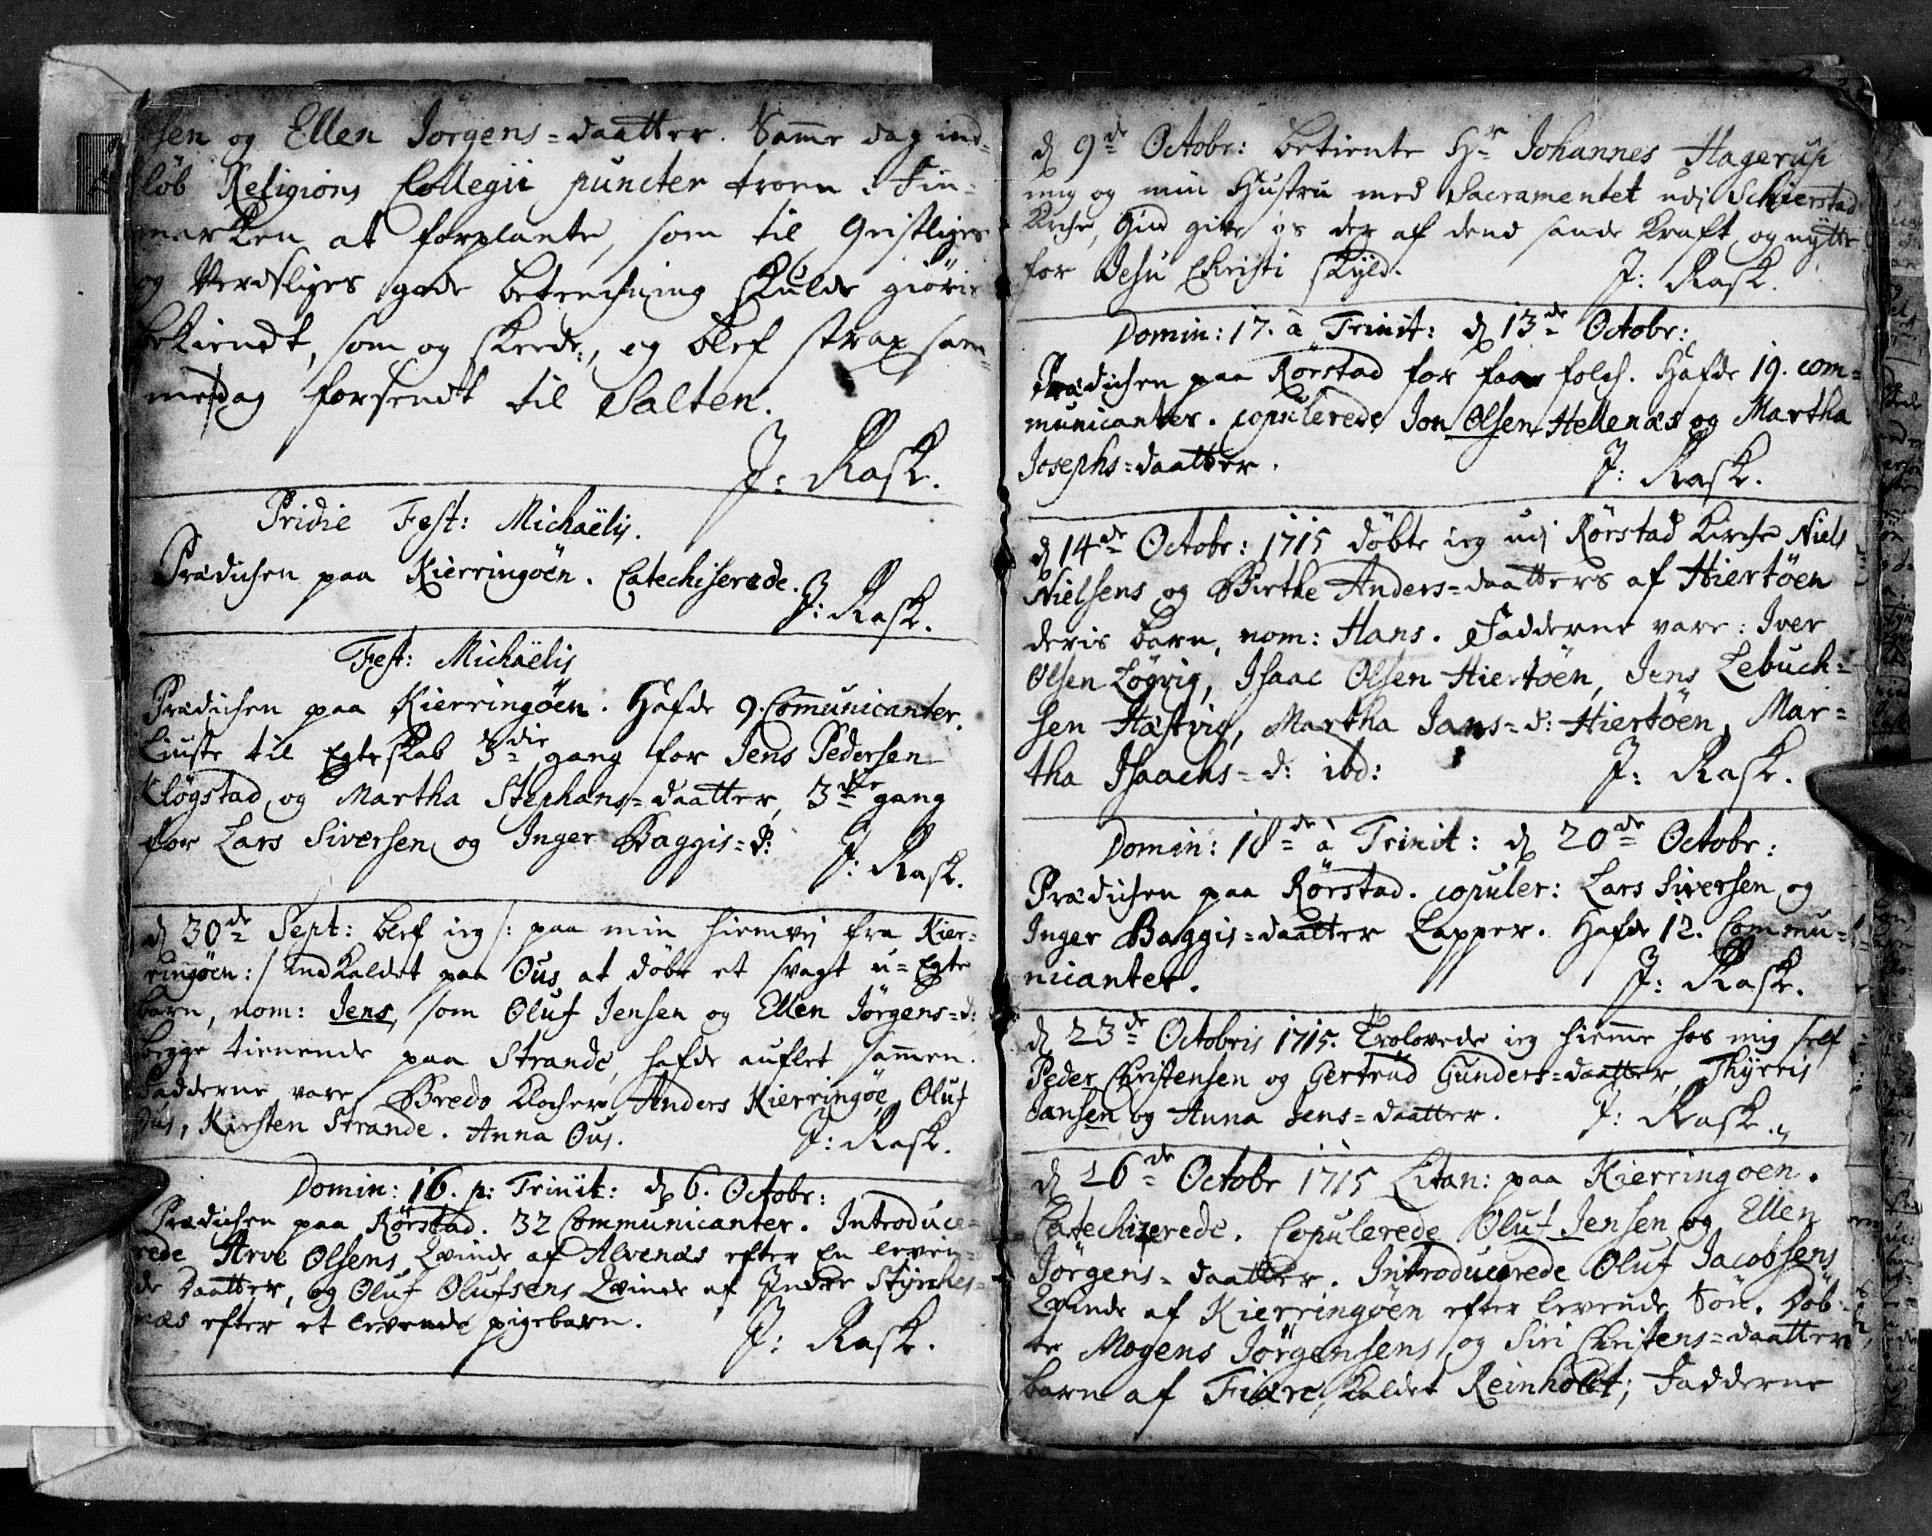 sen og Ellen Jørgens=daatter. Samme dag ind=
løb Religions Collegii puncter troen i Fin=
marken at forplante, som til Geistliges
og Verdsliges gode betenchning skulde giøris
bekiendt, som og skeede, og blef strax sam=
medag forsendt til Salten.
J: Rask.
Pridie Fest: Michaëlis.
Prædichen paa Kierringøen. Catechiserede.
J: Rask.
Fest: Michaëlis
Prædichen paa Kierringøen. Hafde 9. Communicanter.
Liuste til Egteskab 3die gang for Jens Pedersen
Kløgstad og Martha Stephans=daatter, 3die gang
for Lars Siversen og Inger Baggis=d:
J: Rask.
d 30de Sept: blef ieg /: paa min hiemvej fra Kier=
ringøen :/ indkaldet paa Ous at døbe et svagt u=Egte
barn, nom: Jens, som Oluf Jensen og Ellen Jørgens=d:
begge tienende paa Strande, hafde auflet sammen.
Fadderne vare Bredo Klocher, Anders Kierringøe, Oluf
Ous, Kirsten Strande. Anna Ous.
J: Rask.
Domin: 16. p: Trinit: d 6. Octobr:
Prædichen paa Rørstad. 32 Communicanter. Introduce=
rede Arve Olsens Qvinde af Alvenæs efter En leven=
de Daatter, og Oluf Olufsens Qvinde af Indre Styrches=
næs efter et levende pigebarn.
J: Rask.
d 9de Octobr: betiente Hr Johannes Hagerup
mig og min Hustru med Sacramentet udj Schierstad
Kirche, Gud give os der af dend sande Kraft og nytte
for Jesu Christi skyld.
J: Rask.
Domin: 17. à Trinit: d 13de Octobr:
Prædichen paa Rørstad for faae folch. Hafde 19. com=
municanter. copulerede Jon Olsen Hellenæs og Martha
Josephs=daatter.
J: Rask.
d 14de Octobr: 1715 døbte ieg udj Rørstad Kirche Niels
Nielsens og Birthe Anders=daatters af Hiertøen
deris barn, nom: Hans. Fadderne vare: Iver
Olsen Løgvig, Isaac Olsen Hiertøen, Jens Zebuch=
sen Hæstvig, Martha Jans=d: Hiertøen, Mar=
tha Isaachs=d: ibd:
J: Rask.
Domin: 18de à Trinit: d 20de Octobr:
Prædichen paa Rørstad. copuler: Lars Siversen og
Inger Baggis=daatter Lapper. Hafde 12. Commu=
nicanter.
J: Rask.
d 23de Octobris 1715. Trolovede ieg hiemme hos mig self
Peder Christensen og Gertrud Gunders=daatter, Thyrris
Jansen og Anna Jens=daatter.
J: Rask.
d 26de Octobr 1715 Litan: paa Kierringøen.
Catechizerede. Copulerede Oluf Jensen og Ellen
Jørgens=daatter. Introducerede Oluf Jacobsens
Qvinde af Kierringøen efter levende Søn. Døb=
te Mogens Jörgensens og Siri Christens=daatter
barn af Fiære, kaldet Reinholdt; Fadderne